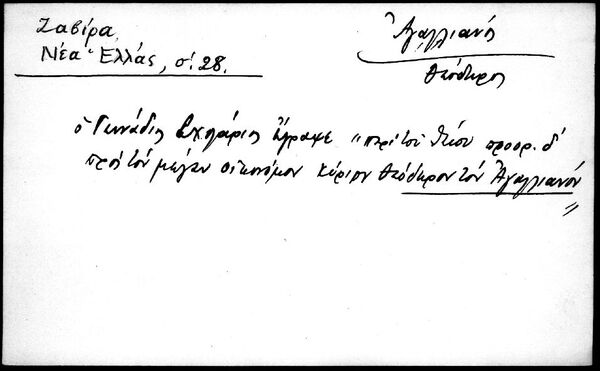 Ζαβίρα
Νέα Ἑλλάς, σ. 28.
Ἀγαλλιανός
Θεόδωρος
ὁ Γεννάδιος Σχολάριος ἔγραψε "περὶ τοῦ θείου προορ. δ'
πρὸς τὸν μέγαν οἰκονόμον κύριον Θεόδωρον τὸν Ἀγαλλιανόν
"